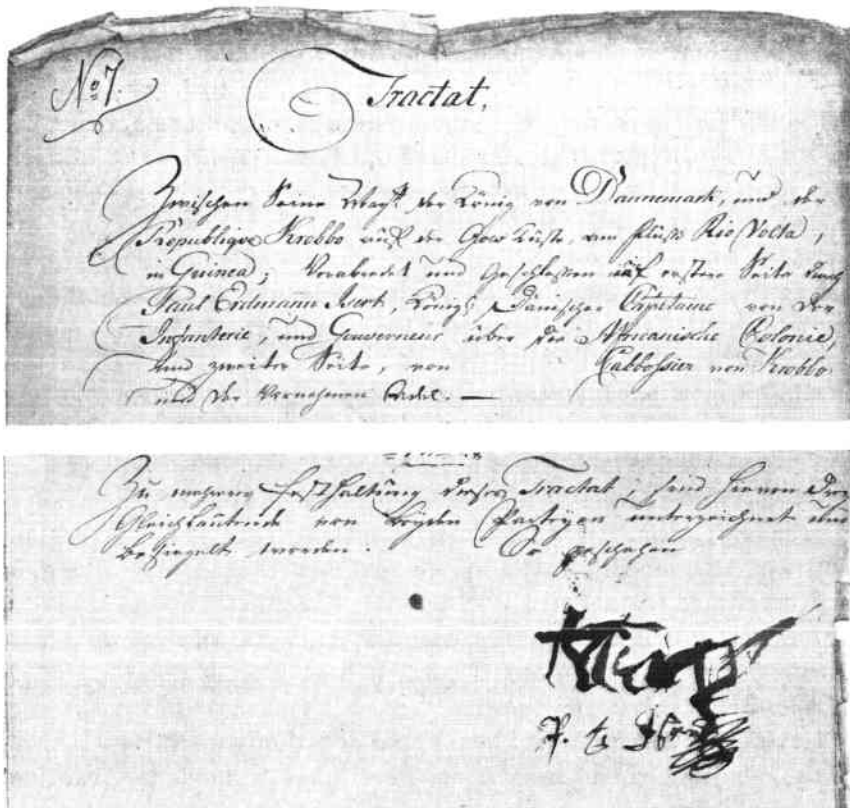 No 7.
Tractat,
Zwischen Seine Mayst. der König von Dannemark, und der
Republique Krobbo auf der Gow Küste, am Fluss Rio Volta,
in Guinea; Verabredet und Geschlossen auf erstere Seite durch
Paul Erdmann Isert, Königl. Dänischer Capitaine von der
Infanterie, und Gouverneur über die Colonie,
und zweiter Seite, von Cabbossier von Krobbo
und der Vornehmen Adel. —
Zu Festhaltung dieses Tractat, sind hievon drey
Gleichlautende von beyden Partheyen unterzeichnet und
besiegelt worden. So geschehen
P. E. Isert